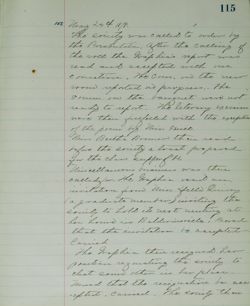 115
May 24th
The society was called to order by
the President. After the calling of
the roll the Graphia's report was
read and accepted with one
correction. The Com. on the new
room reported in progress. The
Comm. on the banquet were not
ready to report. The literary
were then
Miss Bertha then read
the society a toast prepared
for the class supper of
Miscellaneous business was then
called for. The Graphia read an
invitation from Miss
(a graduate member) inviting the
society to hold its next meeting at
her home in Moved
that the invitation be accepted
Carried
The Graphia then resigned her
position requesting the society to
elect some other in her place.
Moved that the resignation be ac-
cepted. Carried. The society then